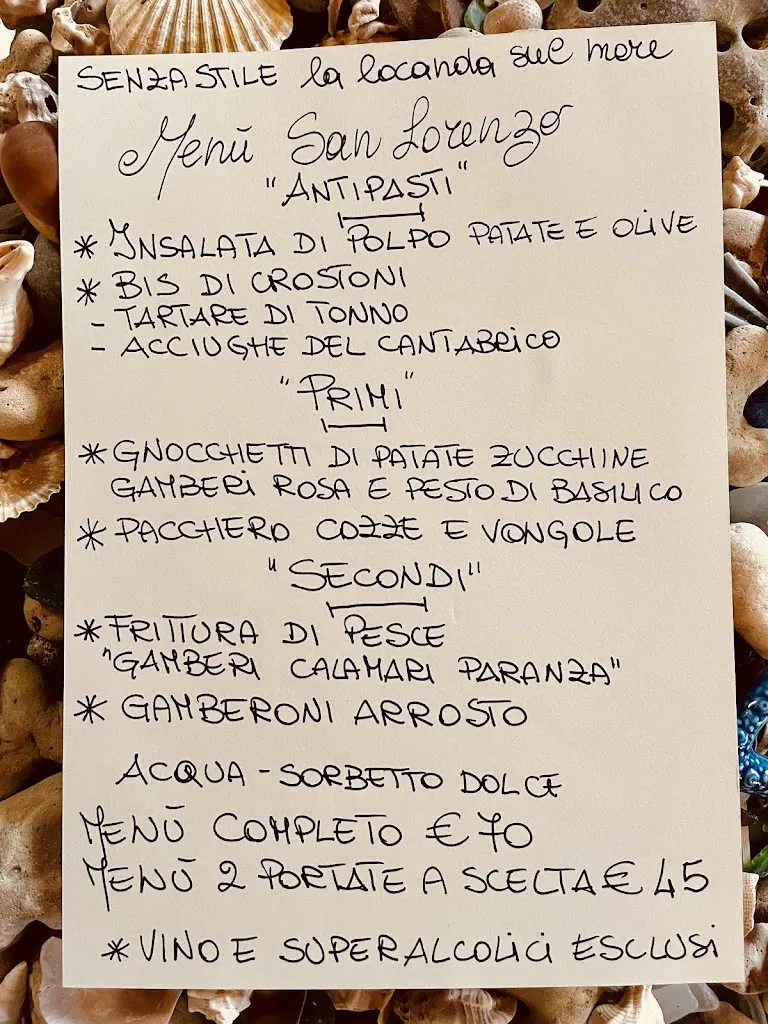 SENZASTILE la locanda sul mare
Menù San Lorenzo
"ANTIPASTI"
* INSALATA DI POLPO PATATE E OLIVE
* BIS DI CROSTONI
- TARTARE DI TONNO
- ACCIUGHE DEL CANTABRICO
"PRIMI"
* GNOCCHETTI DI PATATE ZUCCHINE
GAMBERI ROSA E PESTO DI BASILICO
* PACCHERO COZZE E VONGOLE
"SECONDI"
* FRITTURA DI PESCE
"GAMBERI CALAMARI PARANZA"
* GAMBERONI ARROSTO
ACQUA - SORBETTO DOLCE
MENÙ COMPLETO € 70
MENÙ 2 PORTATE A SCELTA € 45
* VINO E SUPERALCOLICI ESCLUSI